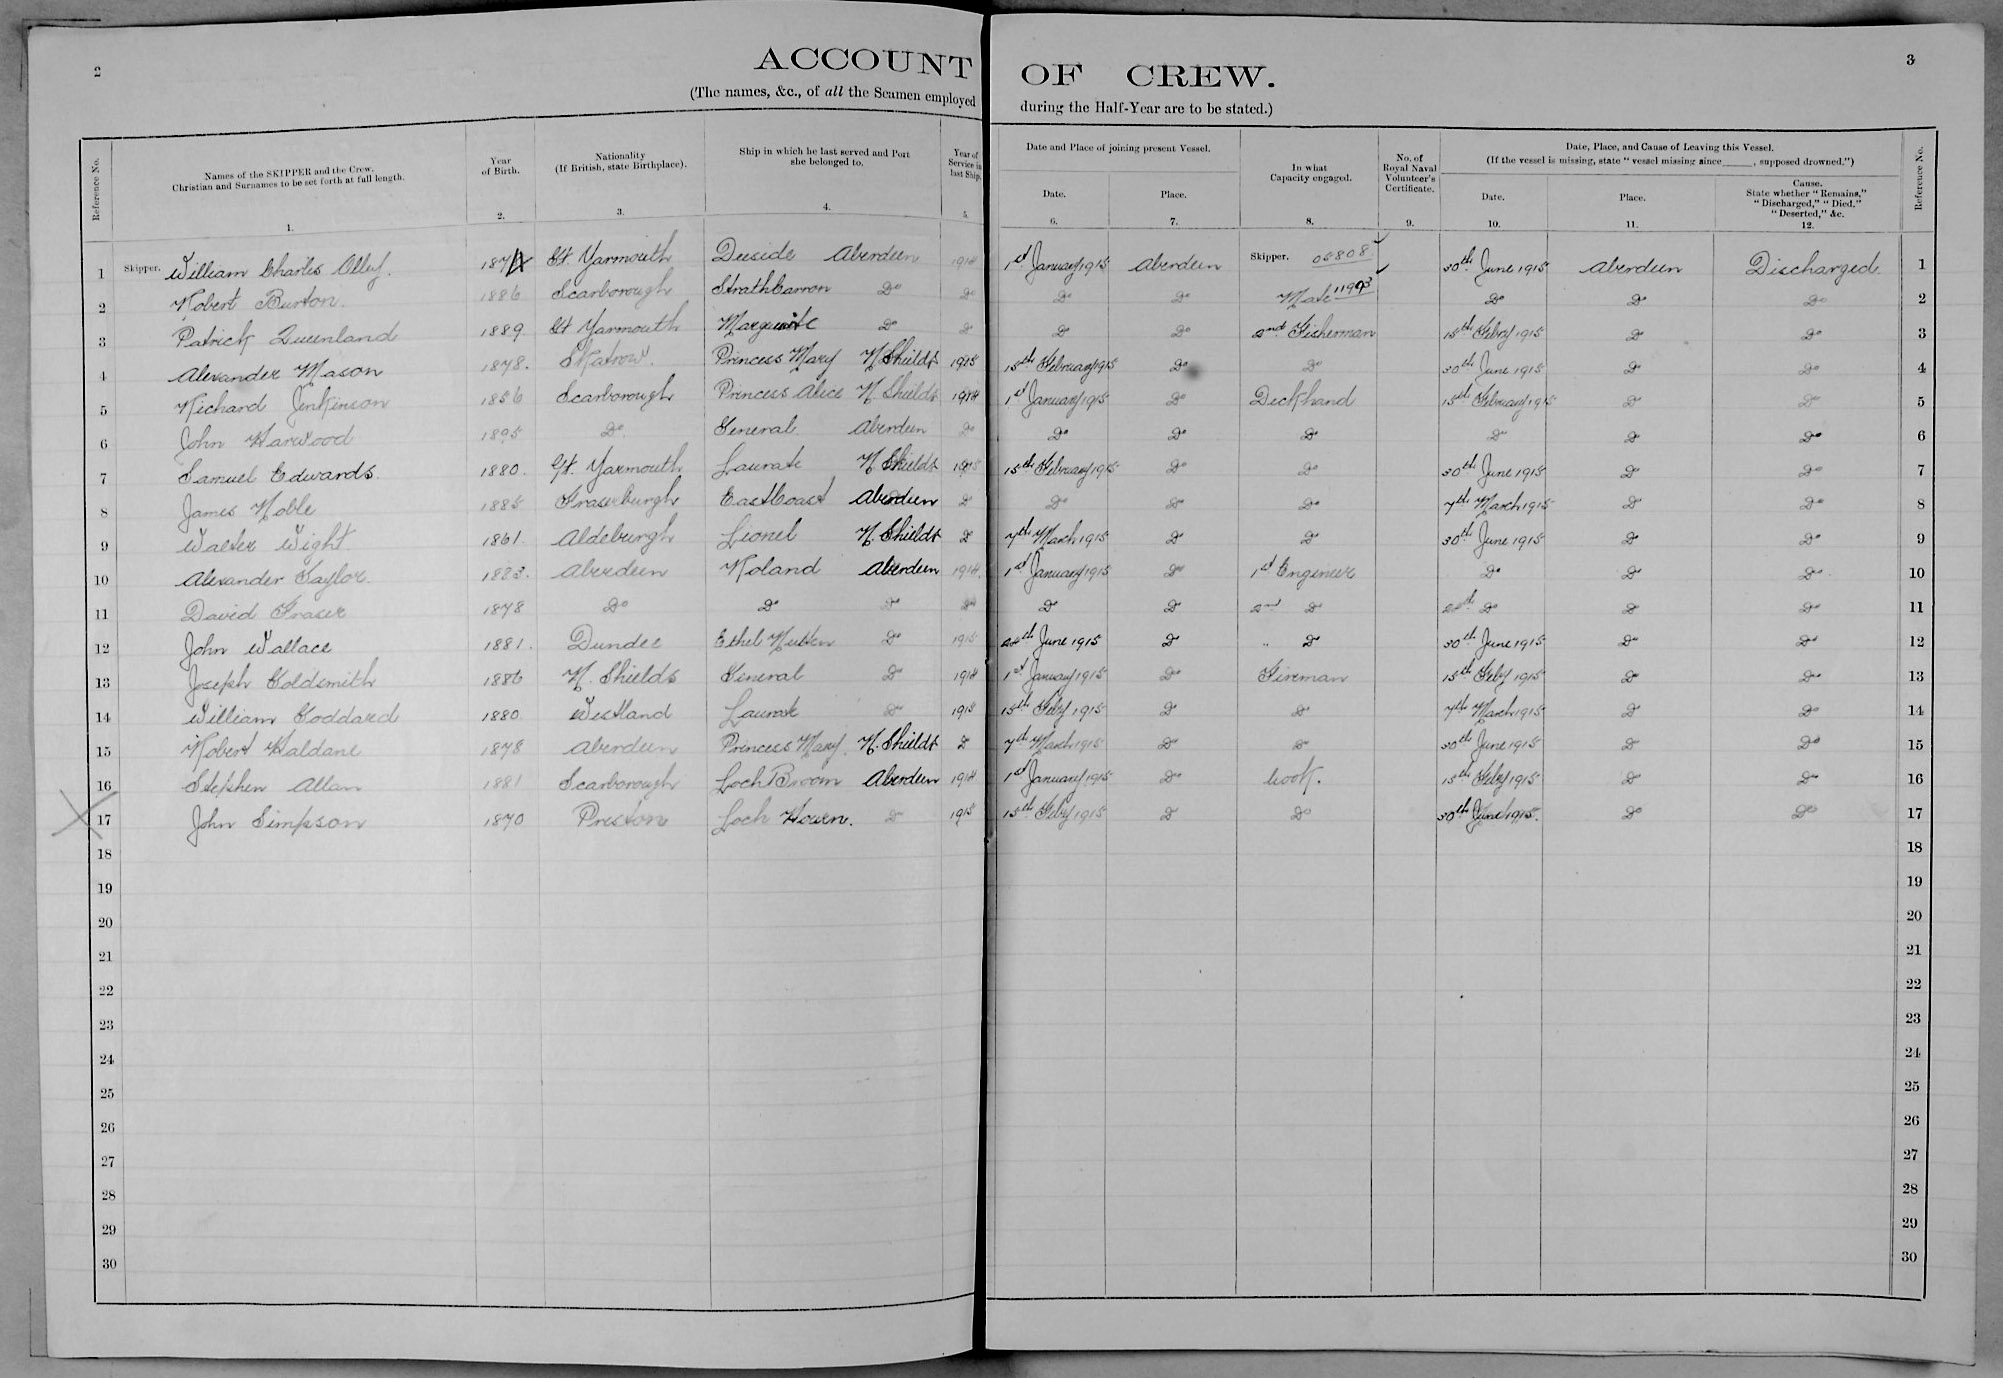 2
ACCOUNT OF CREW.
3
(The names, &c., of all the Seamen employed during the Half-Year are to be stated.)
Reference No.
Names of the SKIPPER and the Crew.
Christian and Surnames to be set forth at full length.
1.
Year of Birth.
2.
Nationality
(If British, state Birthplace).
3.
Ship in which he last served and Port she belonged to.
4.
Year of Service in last Ship.
5.
Date and Place of joining present Vessel.
Date.
6.
Place.
7.
In what Capacity engaged.
8.
No. of Royal Naval Volunteer's Certificate.
9.
Date, Place, and Cause of Leaving this Vessel.
(If the vessel is missing, state "vessel missing since______, supposed drowned.")
Date.
10.
Place.
11.
Cause.
State whether "Remains," "Discharged," "Died." "Deserted," &c.
12.
Reference No.
1 Skipper. William Charles Olley. Gt. Yarmouth Deeside Aberdeen 1914 1st January 1915 Aberdeen Skipper. 05808 30th June 1915 Aberdeen Discharged 1
2 Robert Burton. 1886 Scarborough Strathcarron Do Do Do Do Mate 11903 Do Do Do 2
3 Patrick Queenland 1889. Gt Yarmouth Do Do Do Do 2nd Fisherman 15th Feby 1915 Do Do 3
4 Alexander Mason 1878. Princess Mary N Shields 1915 15th February 1915 Do Do 30th June 1915 Do Do 4
5 Richard Jenkinson 1856 Scarborough Princess Alice N Shields 1914 1st January 1915 Do Deckhand 15th February 1915 Do Do 5
6 John Harwood 1895 Do General Aberdeen Do Do Do Do Do Do Do 6
7 Samuel Edwards. 1880. Gt. Yarmouth Laurak N Shields 1915 15th February 1915 Do Do 30th June 1915 Do Do 7
8 James Noble 1885 Fraserburgh East Coast Aberdeen Do Do Do Do 7th March 1915 Do Do 8
9 Walter Wight. 1861. Aldeburgh Lionel N. Shields Do 7th March 1915 Do Do 30th June 1915 Do Do 9
10 Alexander Taylor. 1883. Aberdeen Roland Aberdeen 1914. 1st January 1915 Do 1st Engineer Do Do Do 10
11 David Fraser 1878 Do Do Do Do Do Do 2nd Do Do Do Do 11
12 John Wallace 1881. Dundee Ethel Do 1915 June 1915 Do " Do 30th June 1915 Do Do 12
13 Joseph Goldsmith 1886 N. Shields General Do 1914 1st January 1915 Do Fireman 15th Feby 1915 Do Do 13
14 William Goddard 1880. Westland Laurak Do 1915 15th Feby 1915 Do Do 7th March 1915 Do Do 14
15 Robert Haldane 1878 Aberdeen Princess Mary. N. Shields Do 7th March 1915 Do Do 30th June 1915 Do Do 15
16 Stephen Allan 1881 Scarborough Loch Broom Aberdeen 1914 1st January 1915 Do Cook. 15th Feby 1915 Do Do 16
17 John Simpson 1870 Preston Loch Hourn. Do 1915 15th Feby 1915 Do Do 30th June 1915. Do Do 17
18 18
19 19
20 20
21 21
22 22
23 23
24 24
25 25
26 26
27 27
28 28
29 29
30 30